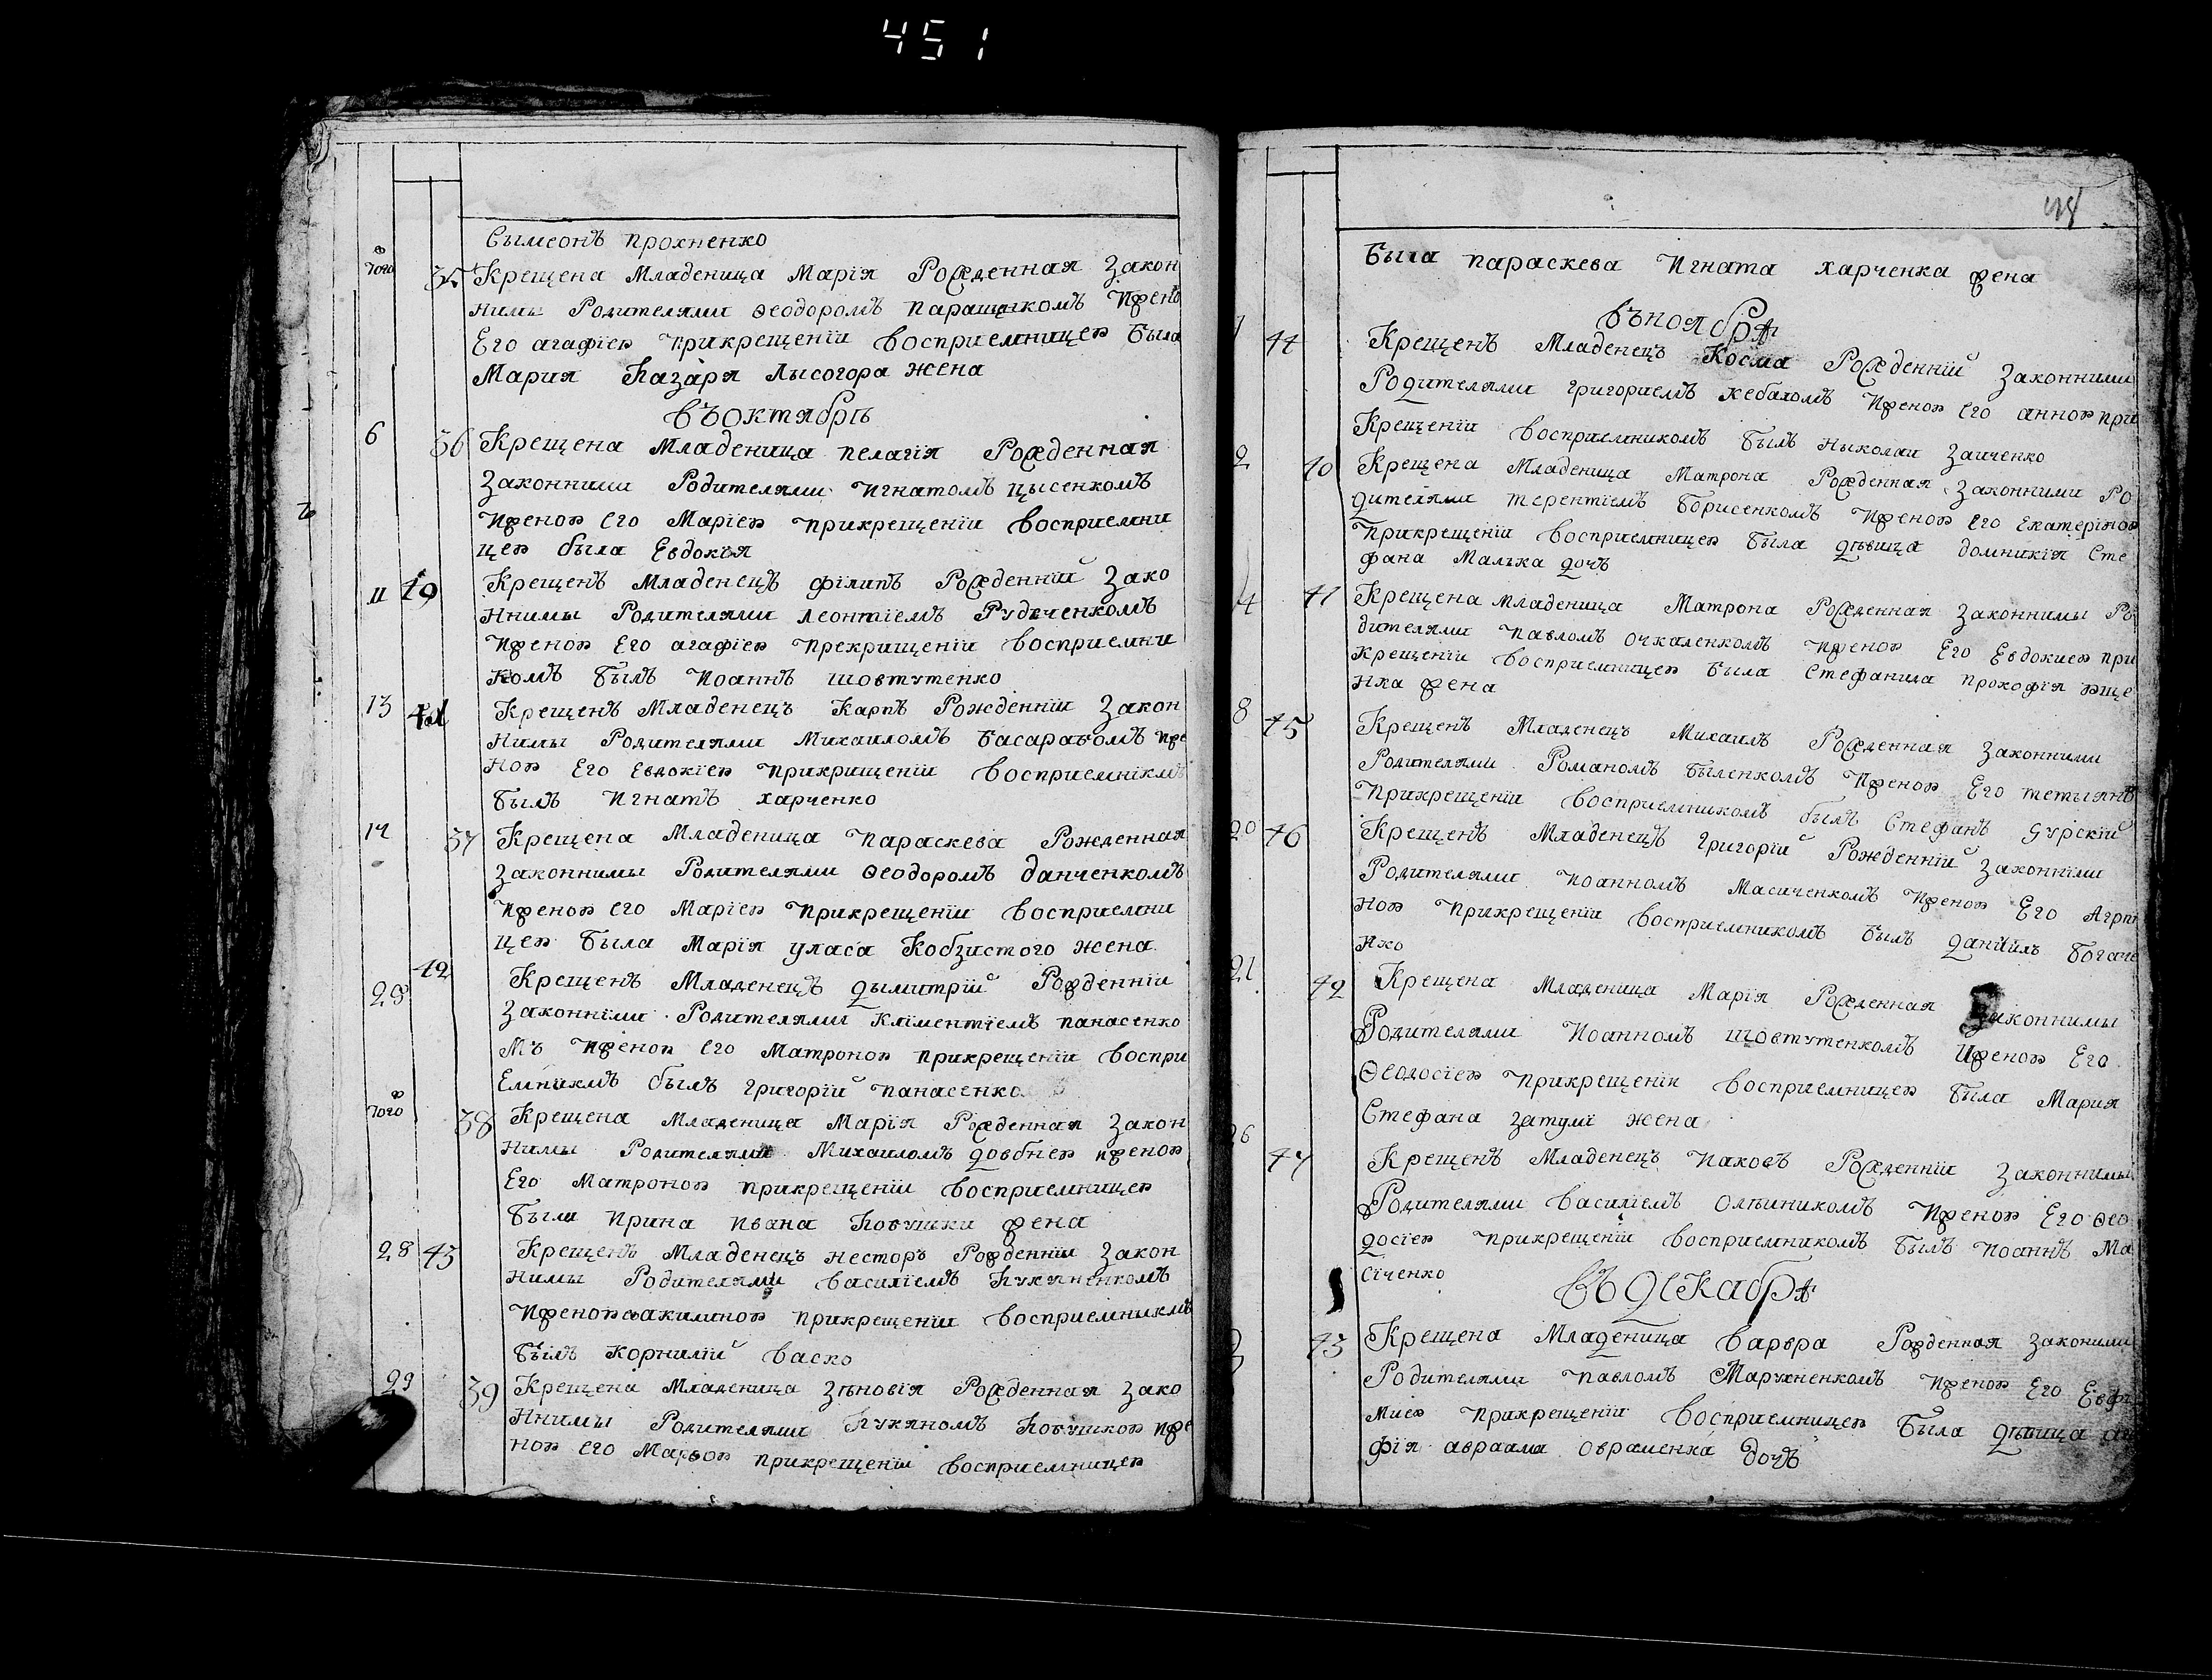 451
Сымеонъ Прохненко
Того 35 Крещена Младеница Марія Рожденная Закон
нимы Родителями Ѳеодоромъ Паращенкомъ Иженою
Его агафіею Прикрещеніи Восприемницею Была
Мария Лазаря Лысогора жена
ВЪОктябрѣ
6 36 Крещена Младеница Пелагія Рожденная
Законними Родителями Игнатомъ Цысенкомъ
Иженою Его Маріею Прикрещеніи Восприемни
цею была Евдокія
11 Крещенъ Младенецъ филипъ Рожденній Зако
Ннимы Родителями Леонтіемъ Рудченкомъ
Иженою Его агафіею Прекрищеніи Восприемни
комъ Былъ Иоаннъ Шовтутенко
13 Крещенъ Младенецъ Карпъ Рожденніи Закон
Нимы Родителями Михаиломъ Басарабомъ Иже
Ною Его Евдокіею Прикрищеніи Восприемнікмъ
Былъ Игнатъ харченко
14 37 Крещена Младеница Параскева Рожденная
Законнимы Родителями Ѳеодоромъ Данченкомъ
Иженою Его Маріею Прикрещеніи Восприемни
цею Была Марія уласа Кобзистого жена
42
Крещенъ Младенецъ Дымитрій Рожденніи
Законніми Родителями Кліментіемъ Панасенко
Мъ Иженою Его Матроною Прикрещеніи Воспри
Емникмъ былъ Григорій Панасенко
Того 38 Крещена Младеница Марія Рожденная Закон
Нимы Родителями Михаиломъ Довбнею иженою
Его Матроною Прикрещеніи Восприемницею
Были Ирина Ивана Ловушки жена
28 43 Крещенъ Младенецъ Несторъ Рожденніи Закон
нимы Родителями Василіемъ Лукяненкомъ
Иженою акилиною Прикрещеніи Восприемникмъ
Былъ Корнилій Васко
29 39 Крещена Младеница Зѣновія Рожденная Зако
Ннимы Родителями Лукяномъ Ловушкою Иже
Ною Его Марѳою Прикрещеніи Восприемницею
Была Параскева Игната харченка жена
ВЪноябрѣ
44 Крещенъ Младенецъ Косма Рожденній Законними
Родителями Григориемъ Кебаломъ Иженою Его анною При
Крещеніи Восприемникомъ Былъ Ныколаи Заиченко
2 40 Крещена Младеница Матрона Рожденная Законними Ро
дителями Терентіемъ Борисенкомъ Иженою Его Екатеріною
Прикрещеніи Восприемницею Была Дѣвица Домникія Сте
фана Малька Дочъ
4 41 Крещена Младеница Матрона Рожденная Законнимы Ро
дителями Павломъ Очкаленкомъ Иженою Его Евдокиею При
Крещеніи Восприемницею Была Стефанида Прокофія юще
нка жена
8 45 Крещенъ Младенецъ Михаилъ Рожденная Законними
Родителями Романомъ Быленкомъ Иженою Его Тетыянѣ
Прикрещеніи Восприемникомъ былъ Стефанъ Гурскій
20 46 Крещенъ Младенецъ Григорій Рожденній Законніми
Родителями Иоанномъ Масиченкомъ Иженою Его Агрпи
ною Прикрещеніи Восприемникомъ Былъ Даніилъ Богаче
Нко
21 42 Крещена Младеница Марія Рожденная Законнимы
Родителями Иоанномъ Шовтутенкомъ Иженою Его
Ѳеодосіею Прикрещеніи Восприемницею Была Мария
Стефана Затулі жена
26 47 Крещенъ Младенецъ Иаковъ Рожденніи Законнимы
Родителями Василіемъ Олѣиникомъ Иженою Его Ѳео
досіею Прикрещеніи Восприемникомъ Былъ Иоаннъ Ма
січенко
ВЪДекабрѣ
43 Крещена Младеница Варвра Рожденная Законими
Родителями Павломъ Марухненкомъ Иженою Его Евфи
Миею Прикрещеніи Восприемницею Была Дѣвица
фія авраама овраменка Дочъ